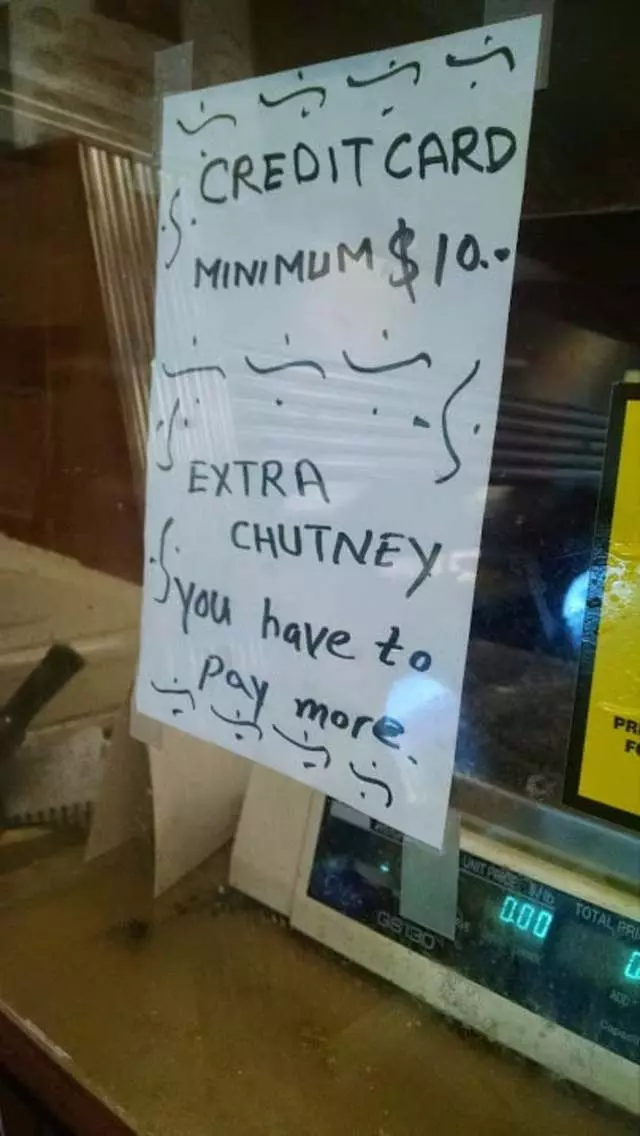 CREDIT CARD
MINIMUM $10..
EXTRA
CHUTNEY
you have to
pay more.
UNIT PRICE $/lb
TOTAL PRI
0.00
0
GS130
PR
F